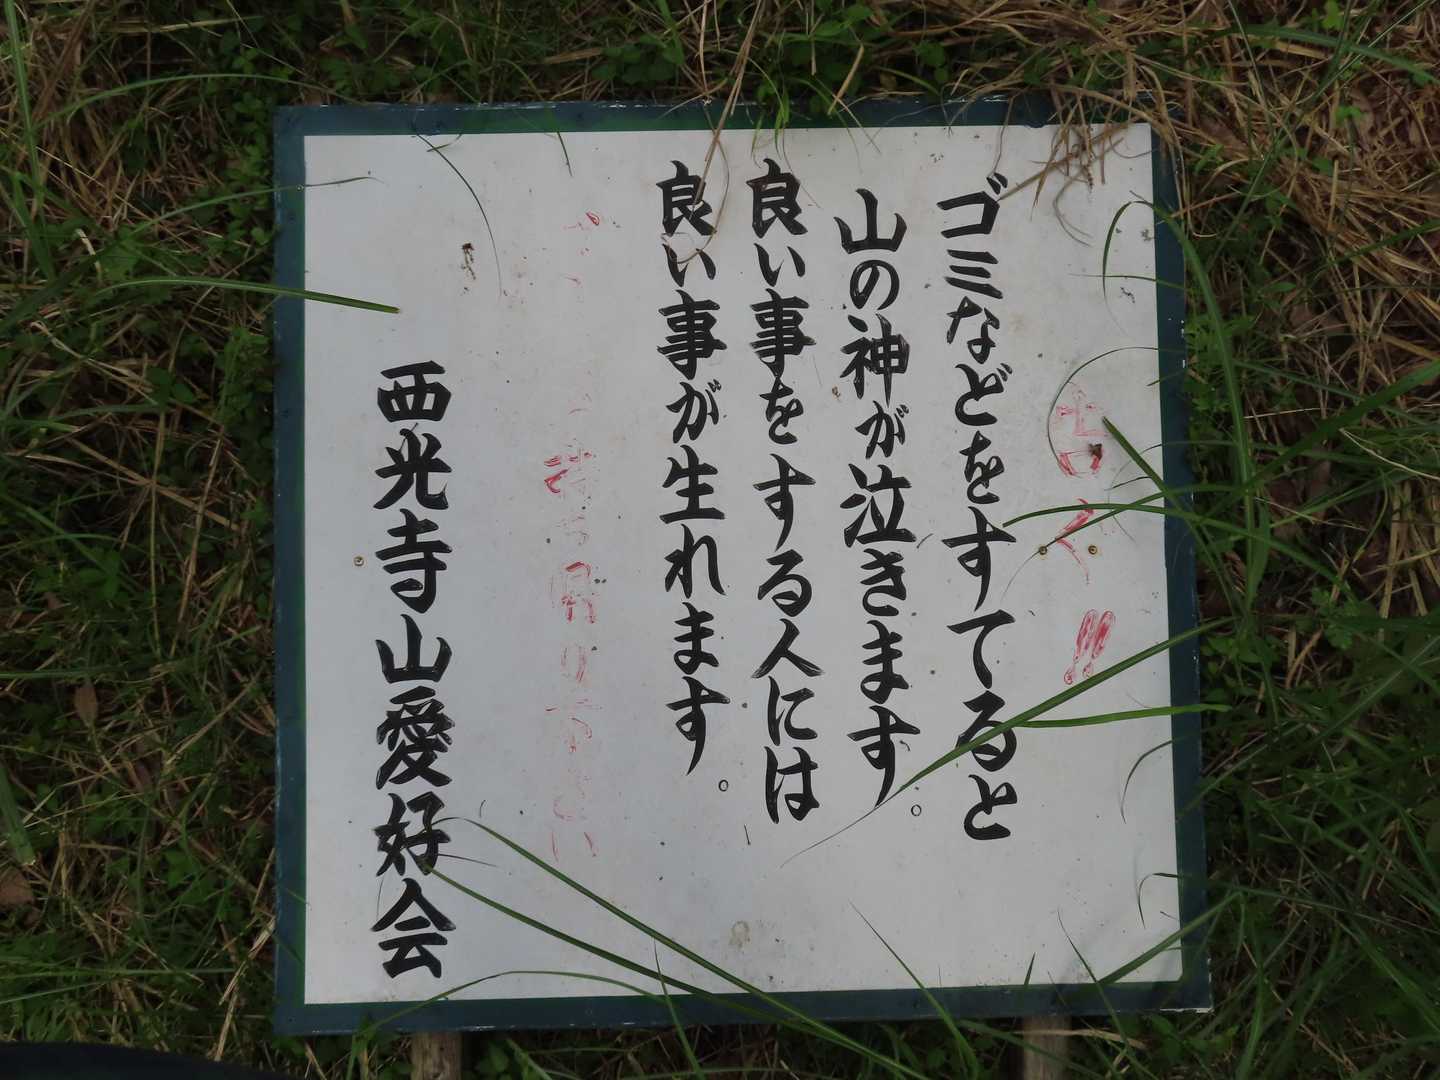 ゴミなどをすてると
山の神が泣きます。
良い事をする人には
良い事が生れます。
西光寺山愛好会